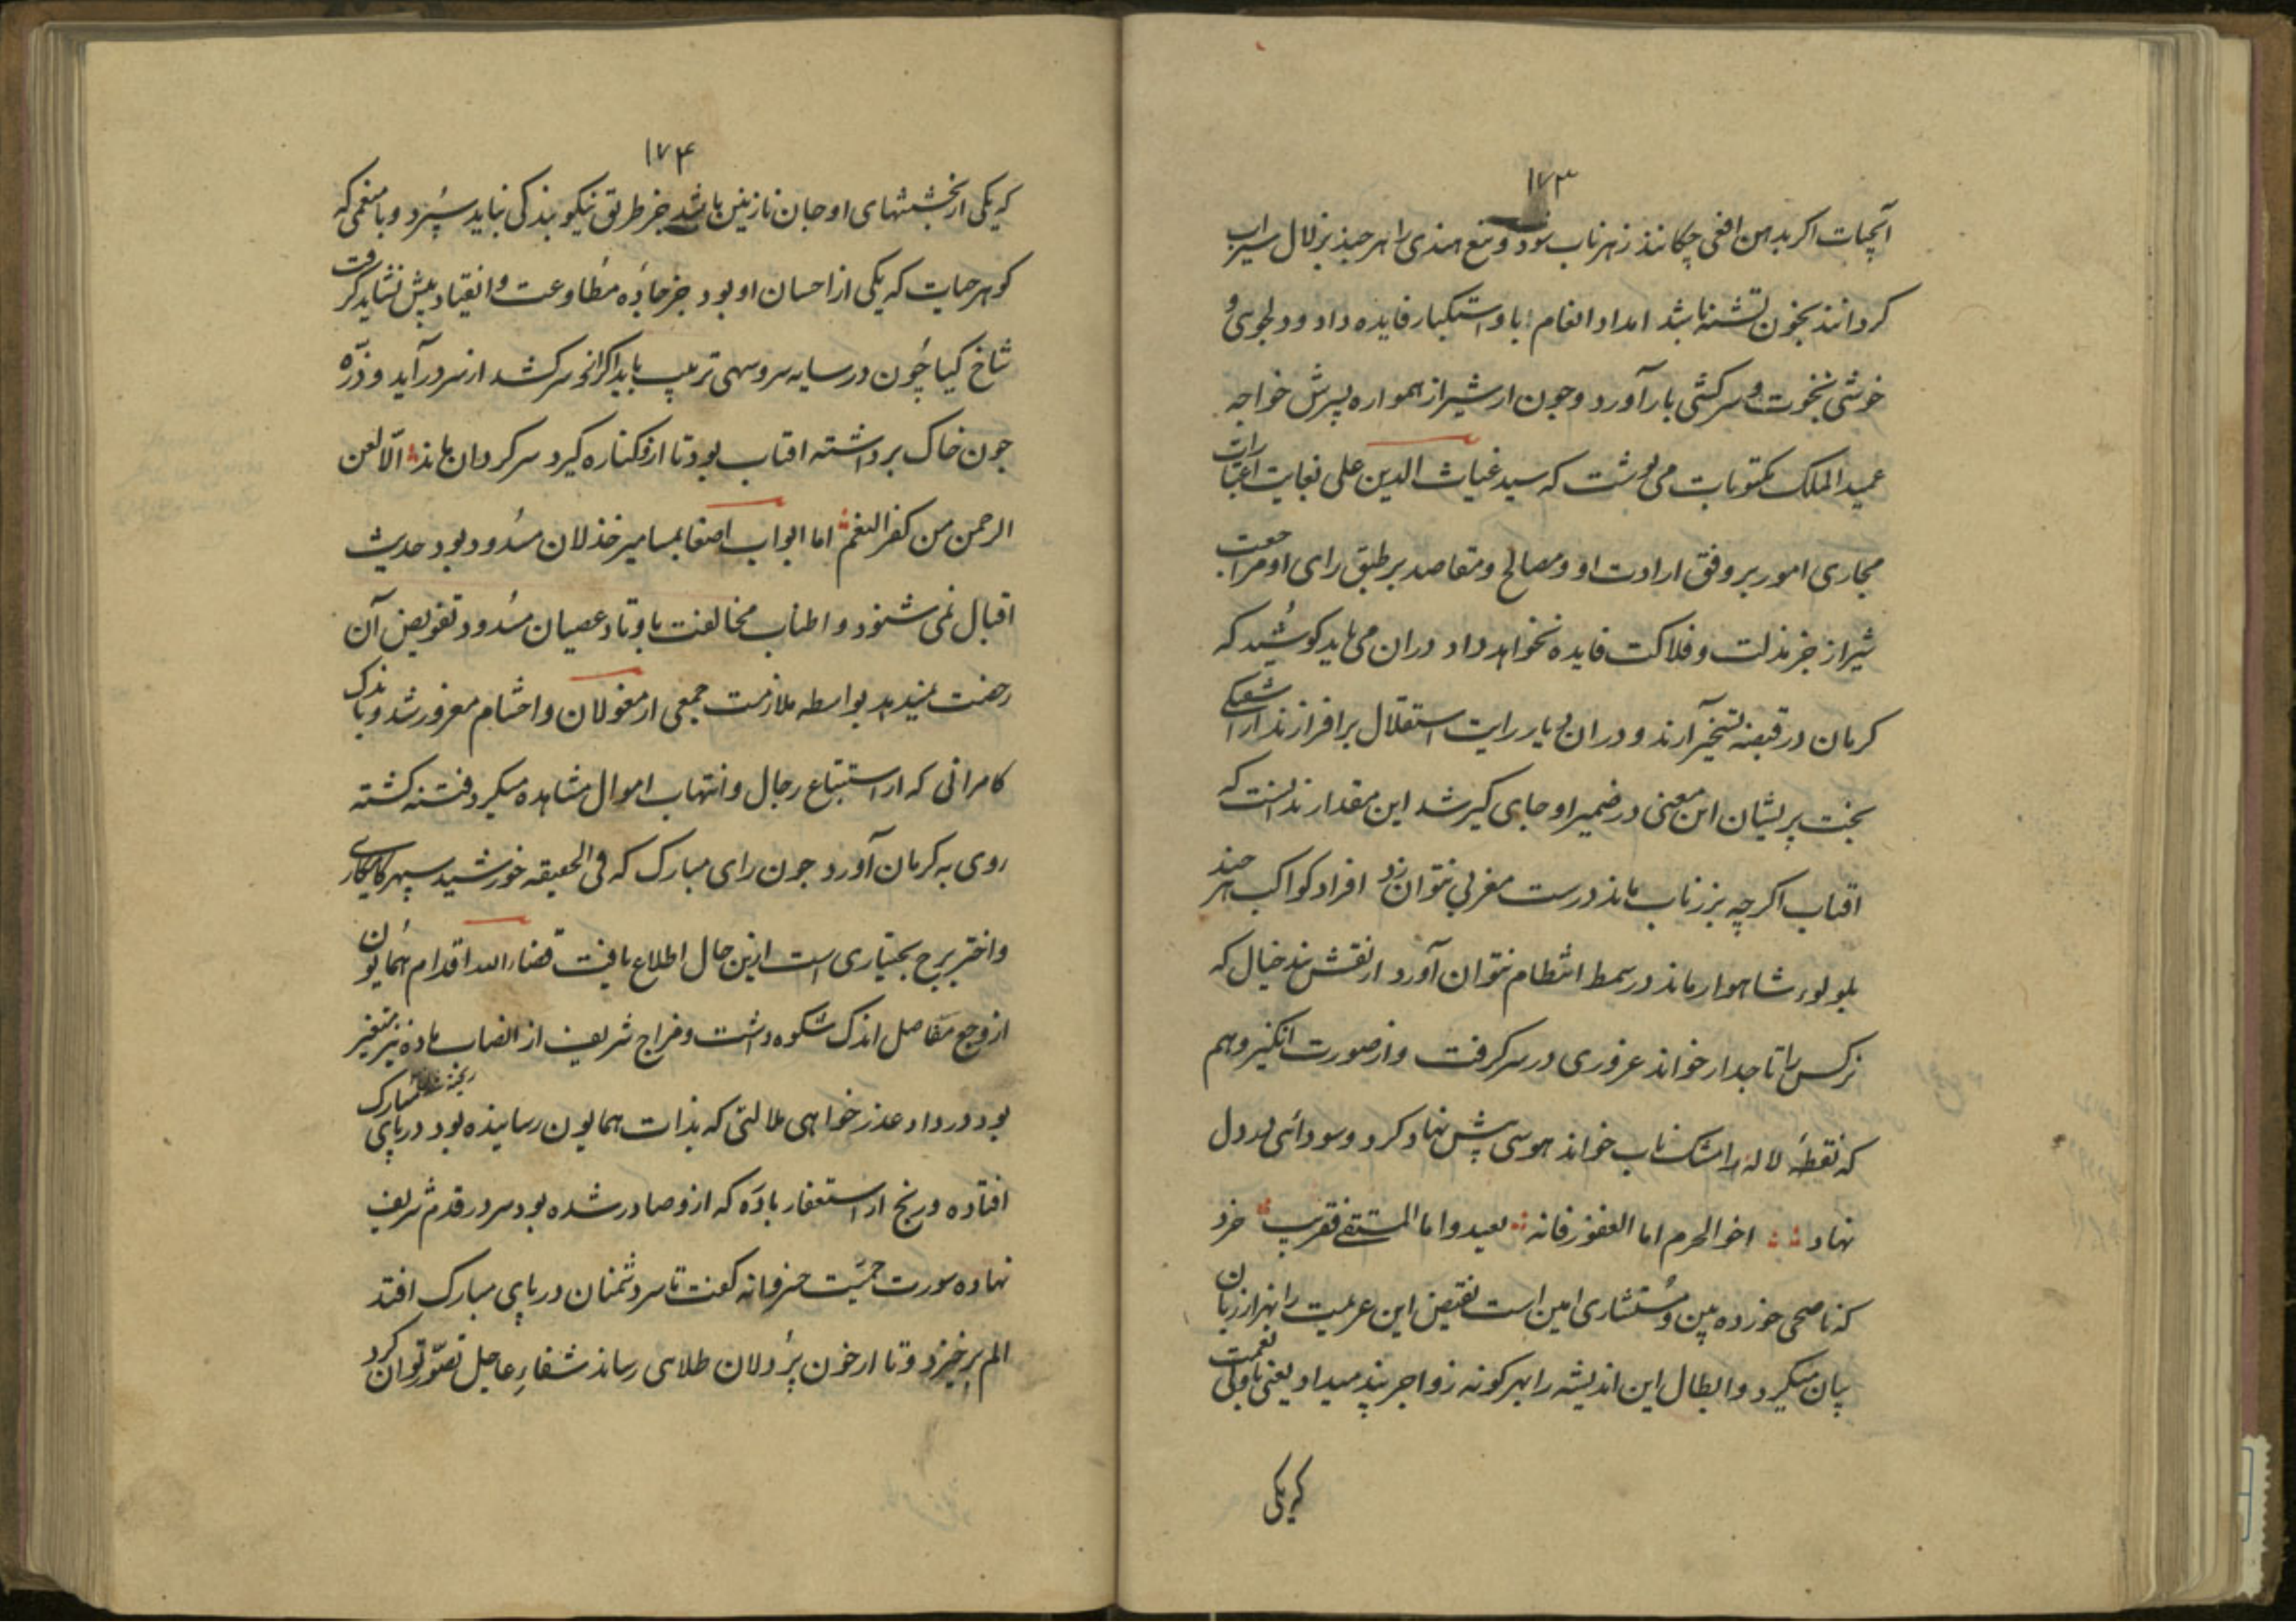 ۱۷۳
آبحیات اکر بدهن افعی چکانند زهر ناب شود و تیغ هندی را هر چند بزلال سیراب
کردانند بخون تشنه باشد امداد انعام با و استکبار فایده داد و دلجویی و
خوشی نخوت و سرکشی بار آورد و چون از شیراز همواره پسرش خواجه
عمید الملک مکتوبات می نوشت که سید غیاث الدین علی بغایت اعتبارات
مجاری امور بر وفق ارادت او و مصالح و مقاصد بر طبق رای او مراجعت
شیراز جز مذلت و فلاکت فایده نخواهد داد دران می باید کوشید که
کرمان در قبضه تسخیر آرند و دران دیار رایت استقلال برافرازند از آشفتکی
بخت پریشان این معنی در ضمیر او جای کیر شد این مقدار ندانست که
افتاب اکرچه بزر ناب ماند درست مغربی نتوان زد افراد کواکب هر چند
بلولوء شاهوار ماند در سمط انتظام نتوان آورد از نقش بند خیال که
نرکس را تاجدار خواند غروری در سر کرفت و از صورت انکیز وهم
که نقطهٔ لاله را مشک ناب خواند هوسی پیش نهاد کرد و سودائی بر دل
نهاد اخو الحرم اما العفو فانه بعید و اما المستقی فقریب خرد
که ناصحی خورده بین و مستشاری امین است نقیض این عزیمت را بهزار زبان
بیان میکرد و ابطال این اندیشه را بهر کونه زواجر پند میداد یعنی با ولی نعمت
که یکی
۱۷۴
که یکی از بخششهای او جان نازنین باشد جز طریق نیکو بندکی نباید سپرد و با منعمی که
کوهر حیات که یکی از احسان او بود جز جادهٔ مطاوعت و انقیاد پیش نشاید کرفت
شاخ کیا چون در سایه سرو سهی تربیت یابد اکر ازو سر کشد از سر در آید و ذرّه
چون خاک برداشته افتاب بود تا ازو کناره کیرد سر کردان بماند الا لعن
الرحمن من کفر النعم اما ابواب اصغا بمسامیر خذلان مسدود بود حدیث
اقبال نمی شنود و اطناب مخالفت باوتاد عصیان مسدود تفویض آن
رخصت نمیدید بواسطه ملازمت جمعی از مغولان و احشام مغرور شد و باندک
کامرانی که از استتباع رجال و انتهاب اموال مشاهده میکرد فتنه کشته
روی به کرمان آورد چون رای مبارک که فی الحقیقه خورشید سپهر کامکاری
و اختر برج بختیاری است ازین حال اطلاع یافت قضاء الله اقدام همایون
از وجع مفاصل اندک شکوه داشت و مزاج شریف از انصاب ماده نیز متغیر
بود درد و عذر خواهی ملالتی که بذات همایون رسانیده بود در پای مبارک
افتاده و رنج از استغفار باده که ازو صادر شده بود سر در قدم شریف
نهاده سورت حمیت خسروانه کفت تا سر دشمنان در پای مبارک افتد
الم برخیزد و تا از خون پردلان طلای رساند شفاء عاجل تصور توان کرد